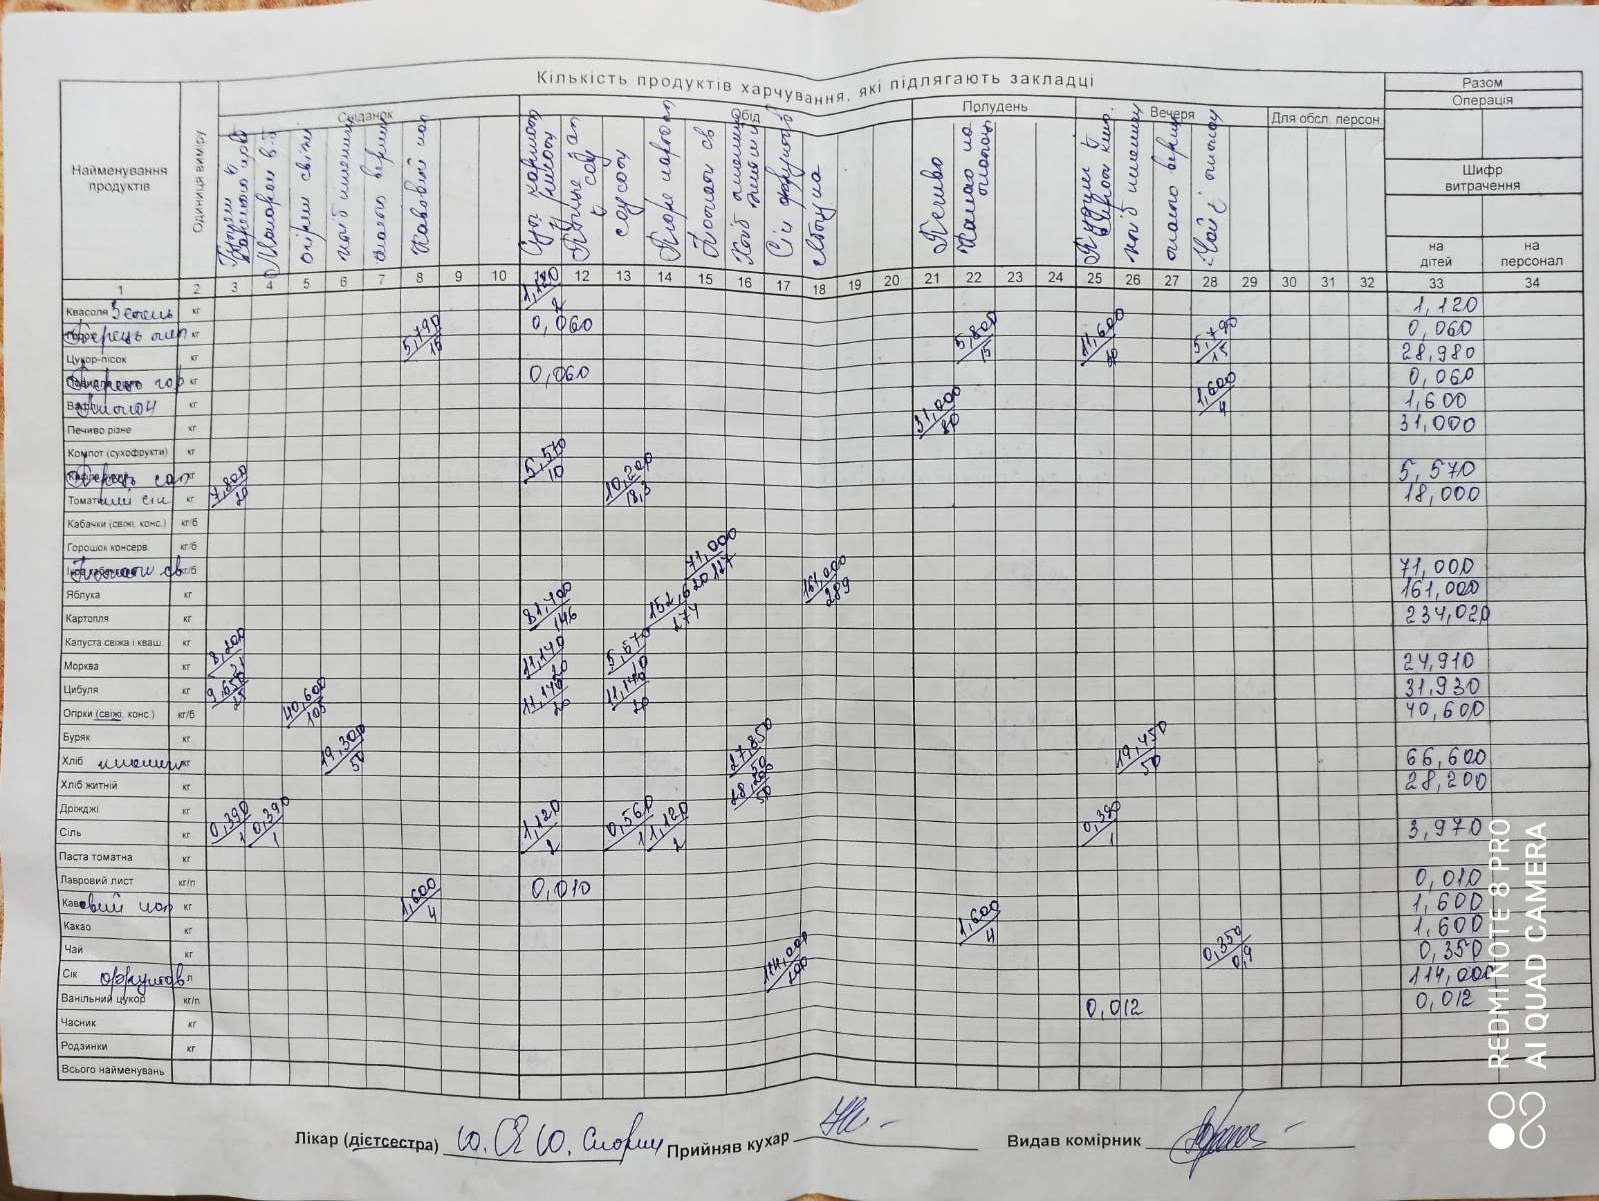 Кількість продуктів харчування, які підлягають закладці
Разом
Операція
Сніданок Обід Полудень Вечеря Для обсл. персон.
Найменування продуктів
Одиниця виміру
Шифр витрачення
на дітей на персонал
Макарон
огірки свіжі
хліб
масло верш
Кавовий нап
Суп
соус
Пюре картоп
Помати св
Хліб
Сік фруктов
Яблука
Печиво
Какао на
хліб
масло верш
Чай з лимоном
1 2 3 4 5 6 7 8 9 10 11 12 13 14 15 16 17 18 19 20 21 22 23 24 25 26 27 28 29 30 31 32 33 34
Квасоля Зелень кг 1,120/2 1,120
Перець кг 0,060 0,060
Цукор-пісок кг 5,790/15 5,800/15 11,600/30 5,790/15 28,980
Перець гор кг 0,060 0,060
Лимон кг 1,600/4 1,600
Печиво різне кг 31,000/80 31,000
Компот (сухофрукти) кг
Перець сол кг 5,570/10 5,570
Томатний сік кг 7,800/20 10,200/18,3 18,000
Кабачки (свіжі, конс.) кг/б
Горошок консерв. кг/б
Помати св кг/б 71,000/127 71,000
Яблука кг 161,000/289 161,000
Картопля кг 81,400/146 152,620/274 234,020
Капуста свіжа і кваш. кг
Морква кг 8,200/21 11,140/20 5,570/10 24,910
Цибуля кг 9,650/25 11,140/20 11,140/20 31,930
Огірки (свіжі, конс.) кг/б 40,600/105 40,600
Буряк кг
Хліб пшенич кг 19,300/50 27,850/50 19,450/50 66,600
Хліб житній кг 28,200/50 28,200
Дріжджі кг
Сіль кг 0,390/1 0,390/1 1,120/2 0,560/1 1,120/2 0,390/1 3,970
Паста томатна кг
Лавровий лист кг/п 0,010 0,010
Кавовий нап кг 1,600/4 1,600
Какао кг 1,600/4 1,600
Чай кг 0,350/0,9 0,350
Сік фруктов л 114,000/200 114,000
Ванільний цукор кг/п 0,012 0,012
Часник кг
Родзинки кг
Всього найменувань
Лікар (дієтсестра) Прийняв кухар Видав комірник
REDMI NOTE 8 PRO
AI QUAD CAMERA